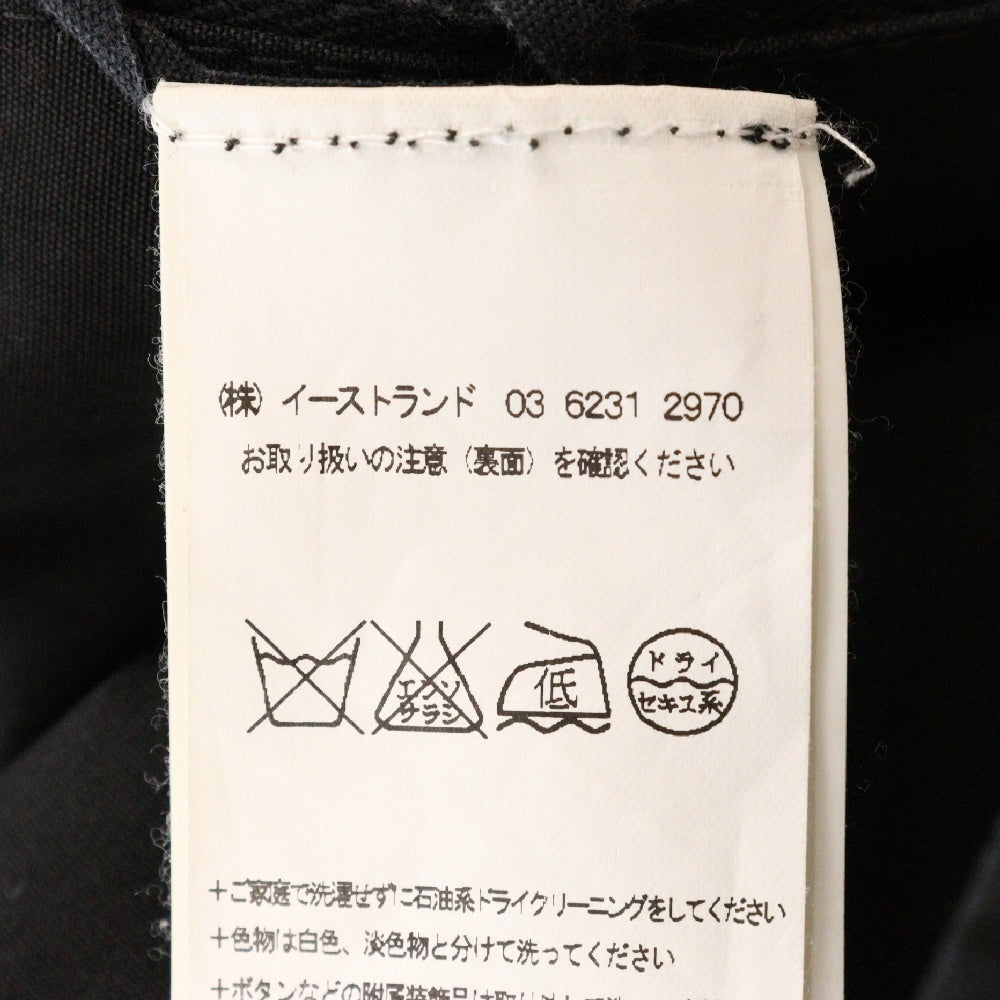 ㈱ イーストランド 03 6231 2970
お取り扱いの注意（裏面）を確認ください
エンソ
サラシ
低
ドライ
セキユ系
+ご家庭で洗濯せずに石油系ドライクリーニングをしてください
+色物は白色、淡色物と分けて洗ってください
+ボタンなどの附属装飾品は取り外して洗